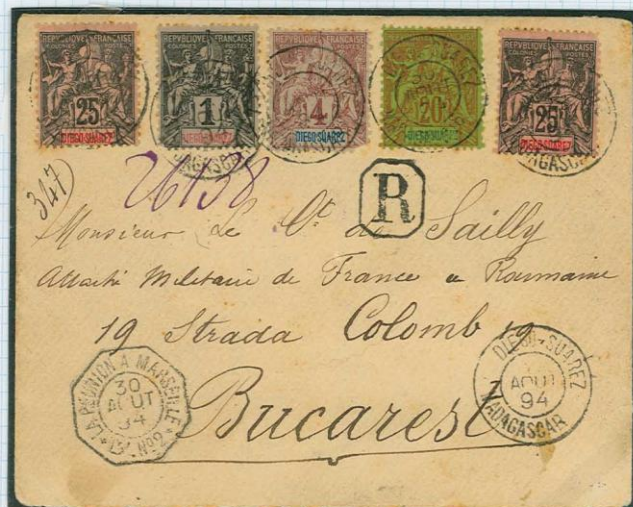 REPVBLIQUE FRANÇAISE
COLONIES POSTES
25
DIEGO-SUAREZ
REPVBLIQUE FRANÇAISE
COLONIES POSTES
1
DIEGO-SUAREZ
MADAGASCAR
REPVBLIQUE FRANÇAISE
4
DIEGO-SUAREZ
20
DIEGO-SUAREZ
REPVBLIQUE FRANÇAISE
COLONIES POSTES
25
DIEGO-SUAREZ
MADAGASCAR
347
26138
R
Monsieur Le Ct de Sailly
Attaché Militaire de France a Roumanie
19 Strada Colomb 19
Bucarest
LA REUNION A MARSEILLE
30
AOUT
94
Nº2
DIEGO-SUAREZ
AOUT
94
MADAGASCAR